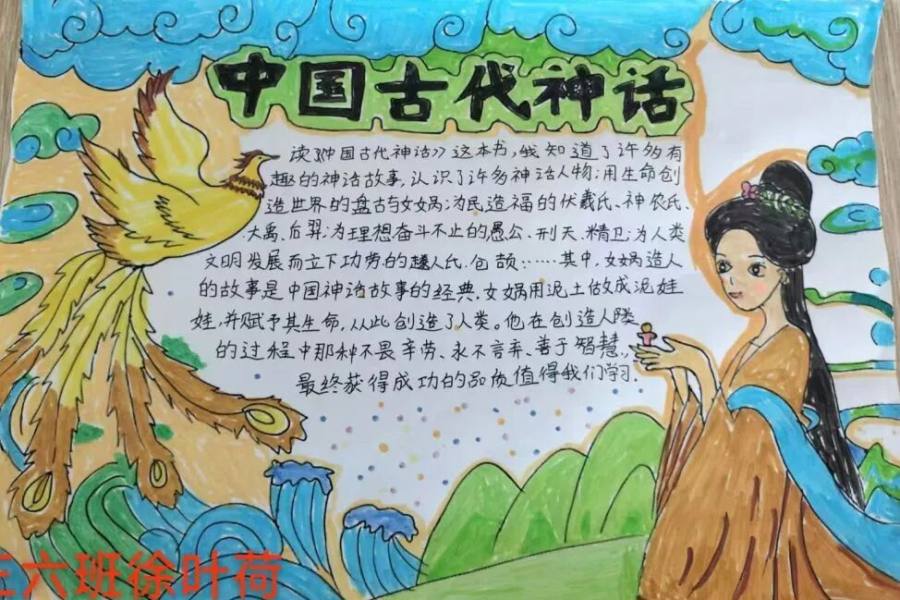 中国古代神话
读《中国古代神话》这本书,我知道了许多有
趣的神话故事,认识了许多神话人物:用生命创
造世界的盘古与女娲;为民造福的伏羲氏、神农氏、
大禹、后羿;为理想奋斗不止的愚公、刑天、精卫;为人类
文明发展而立下功劳的燧人氏、仓颉……其中,女娲造人
的故事是中国神话故事的经典,女娲用泥土做成泥娃
娃,并赋予其生命,从此创造了人类。他在创造人类
的过程中那种不畏辛劳、永不言弃、善于智慧,
最终获得成功的品质值得我们学习.
三六班徐叶荷